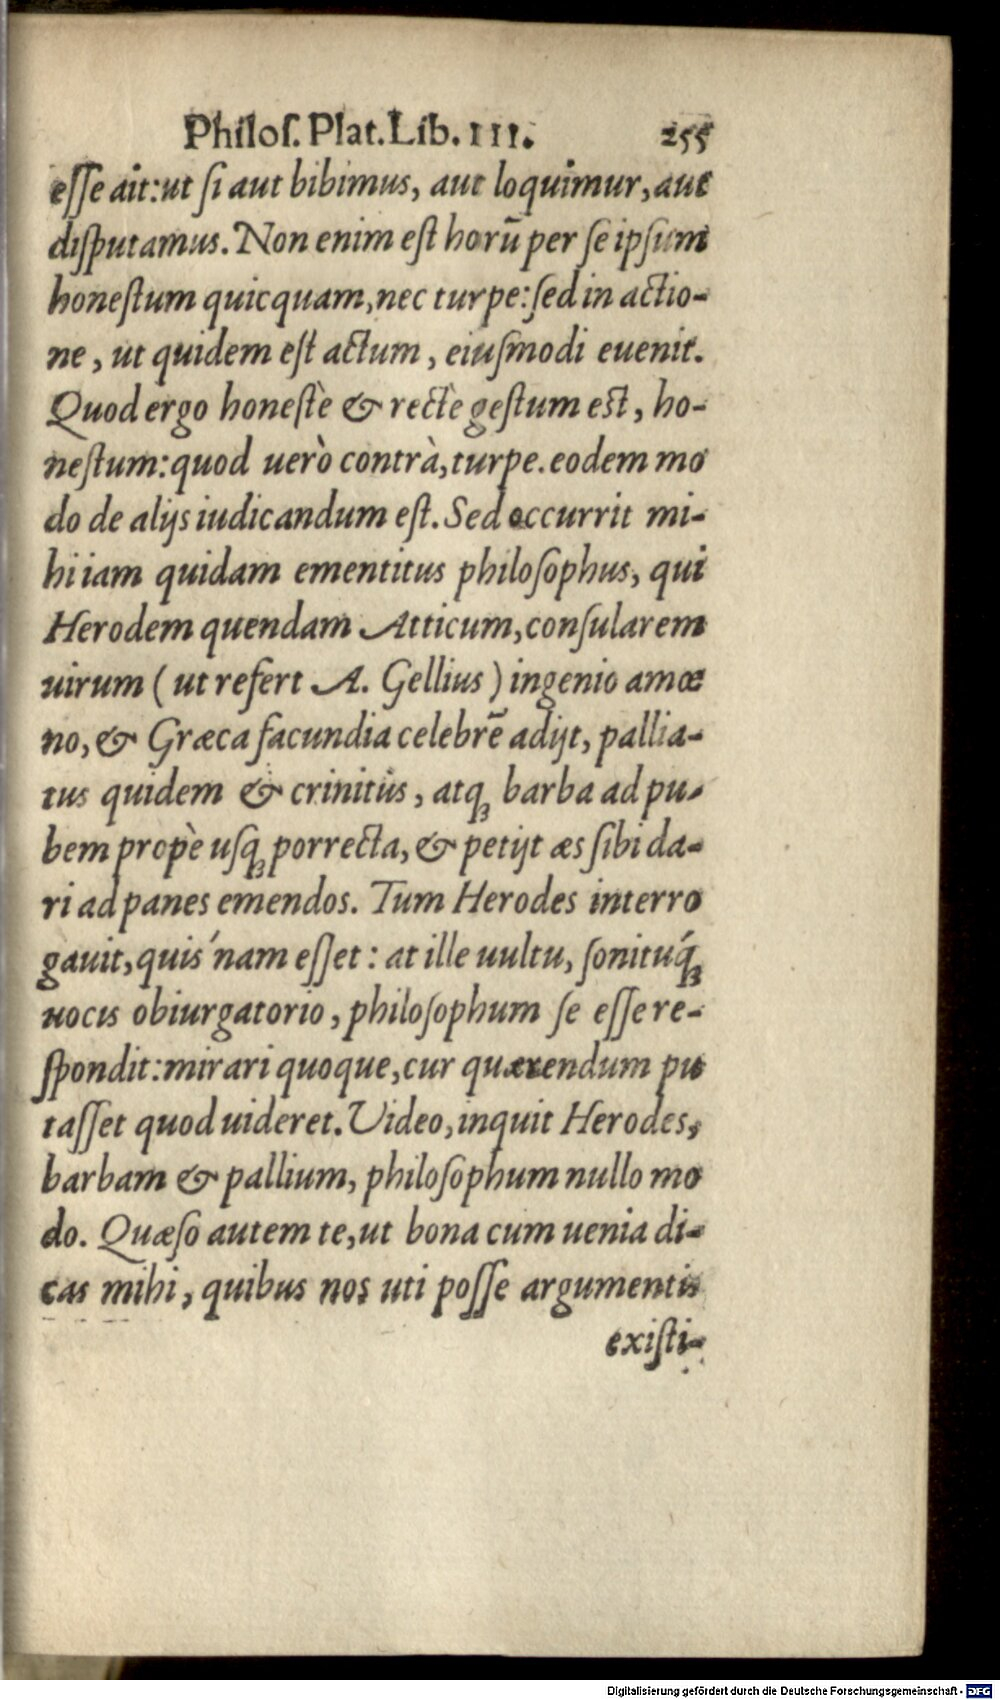 Philoſ. Plat. Lib. III. 255
eſſe ait: ut ſi aut bibimus, aut loquimur, aut
diſputamus. Non enim eſt horū per ſe ipſum
honeſtum quicquam, nec turpe: ſed in actio-
ne, ut quidem eſt actum, eiuſmodi euenit.
Quod ergo honeſtè & rectè geſtum eſt, ho-
neſtum: quod uerò contrà, turpe. eodem mo
do de alijs iudicandum eſt. Sed occurrit mi-
hi iam quidam ementitus philoſophus, qui
Herodem quendam Atticum, conſularem
uirum ( ut refert A. Gellius ) ingenio amœ
no, & Græca facundia celebrē adijt, pallia-
tus quidem & crinitus, atqꝫ barba ad pu-
bem propè uſqꝫ porrecta, & petijt æs ſibi da-
ri ad panes emendos. Tum Herodes interro
gauit, quis'nam eſſet: at ille uultu, ſonituq́ꝫ
uocis obiurgatorio, philoſophum ſe eſſe re-
ſpondit: mirari quoque, cur quærendum pu
taſſet quod uideret. Video, inquit Herodes,
barbam & pallium, philoſophum nullo mo
do. Quæſo autem te, ut bona cum uenia di-
cas mihi, quibus nos uti poſſe argumentis
exiſti-
Digitalisierung gefördert durch die Deutsche Forschungsgemeinschaft - DFG